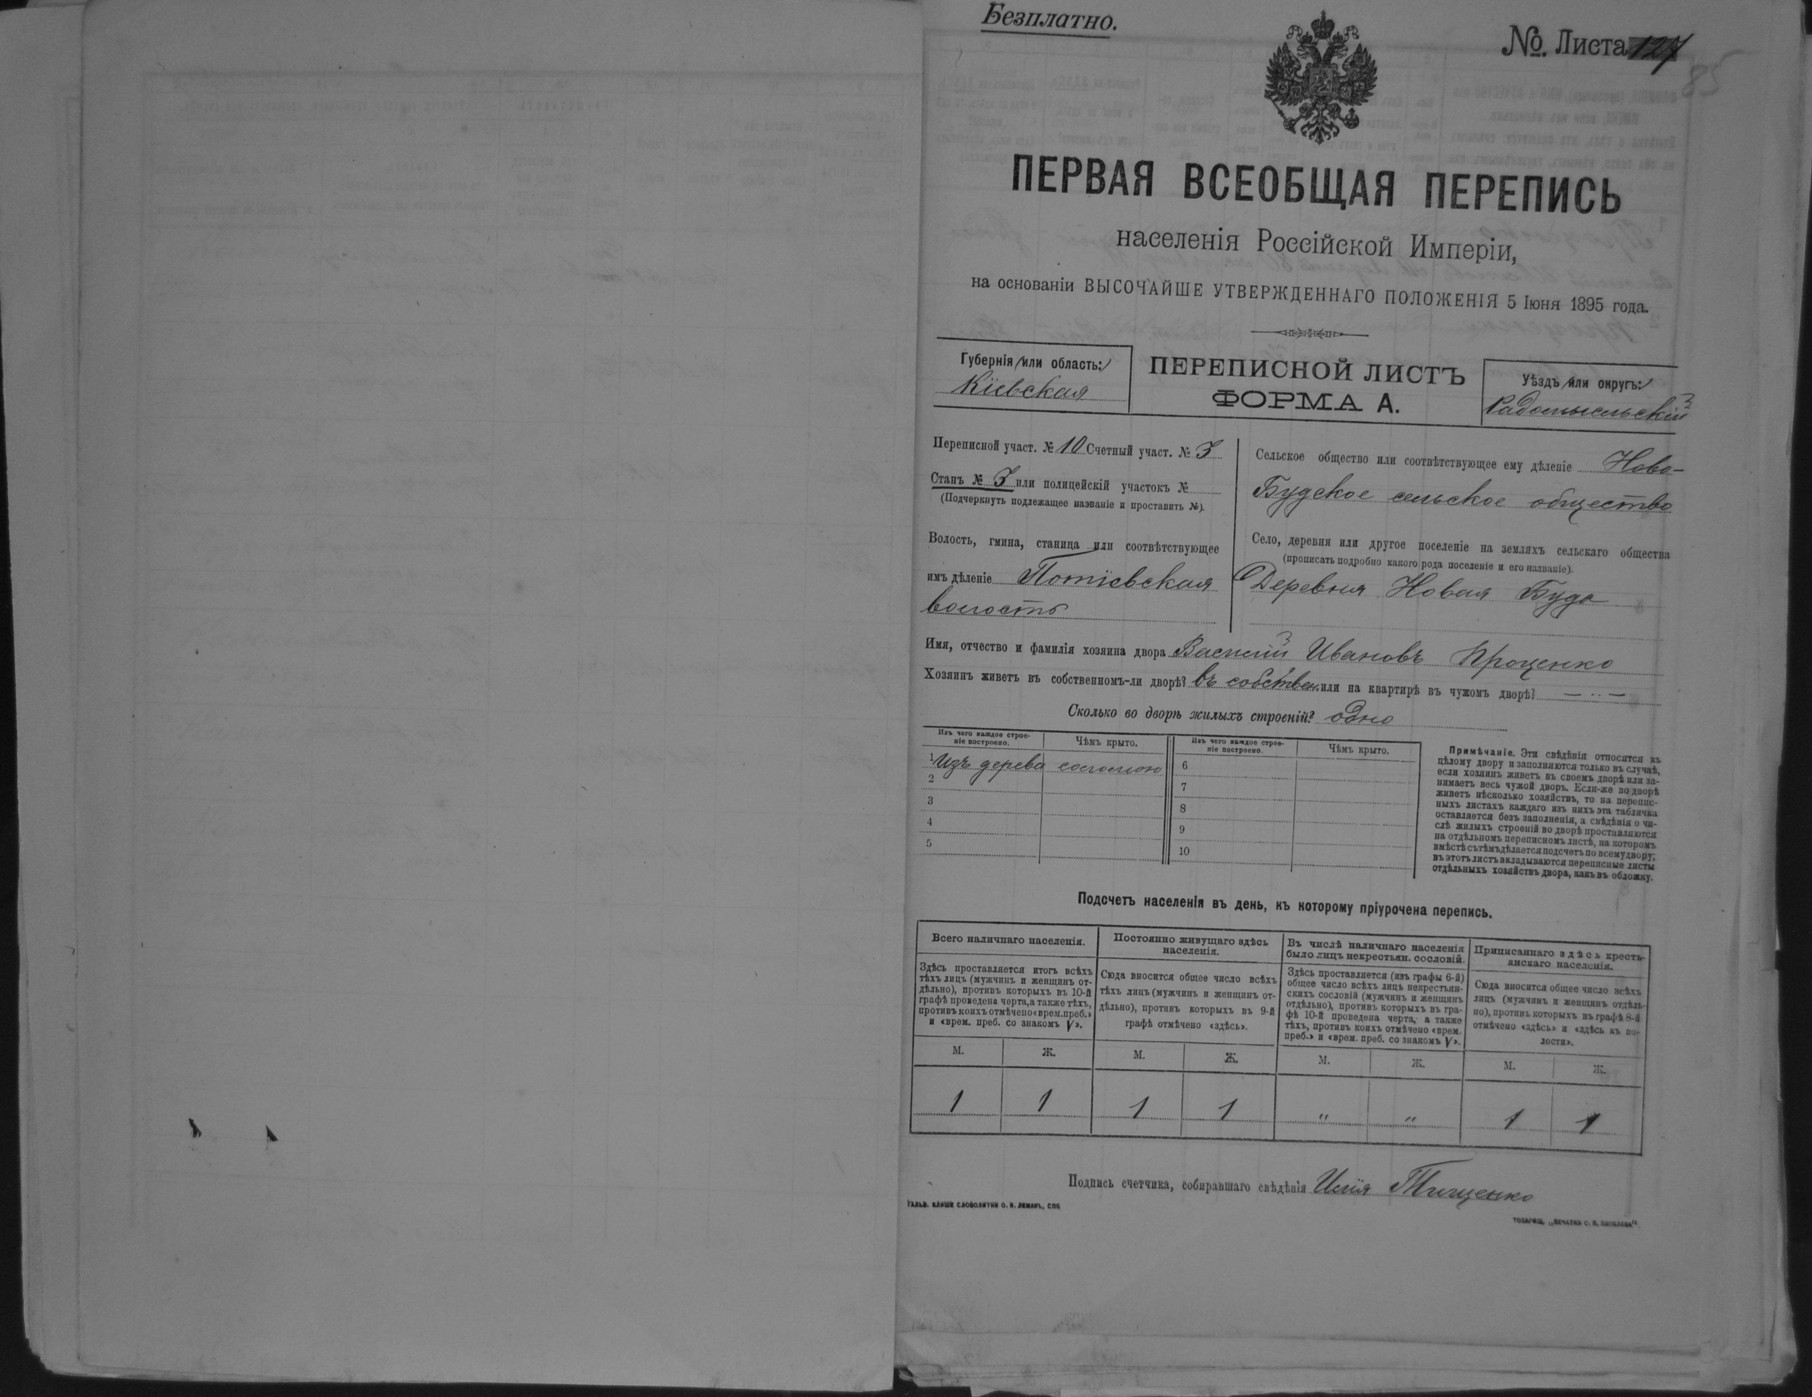 Безплатно.
№ Листа 127
85
ПЕРВАЯ ВСЕОБЩАЯ ПЕРЕПИСЬ
населенія Россійской Имперіи,
на основаніи ВЫСОЧАЙШЕ УТВЕРЖДЕННАГО ПОЛОЖЕНІЯ 5 Іюня 1895 года.
Губернія или область:
Кіевская
ПЕРЕПИСНОЙ ЛИСТЪ
ФОРМА А.
Уѣздъ или округъ:
Радомысльскій
Переписной участ. № 10 Счетный участ. № 3
Станъ № 3 или полицейскій участокъ №
(Подчеркнуть подлежащее названіе и проставить №).
Волость, гмина, станица или соотвѣтствующее
имъ дѣленіе Потіевская
волость
Сельское общество или соотвѣтствующее ему дѣленіе Ново-
Будское сельское общество
Село, деревня или другое поселеніе на земляхъ сельскаго общества
(прописать подробно какого рода поселеніе и его названіе).
Деревня Новая Буда
Имя, отчество и фамилія хозяина двора Василій Ивановъ Проценко
Хозяинъ живетъ въ собственномъ-ли дворѣ? въ собствен. или на квартирѣ въ чужомъ дворѣ? — " —
Сколько во дворѣ жилыхъ строеній? одно
Изъ чего каждое строе-
ніе построено.
Чѣмъ крыто.
Изъ чего каждое строе-
ніе построено.
Чѣмъ крыто.
1 Изъ дерева соломою
2
3
4
5
6
7
8
9
10
Примѣчаніе. Эти свѣдѣнія относятся къ
цѣлому двору и заполняются только въ случаѣ,
если хозяинъ живетъ въ своемъ дворѣ или за-
нимаетъ весь чужой дворъ. Если-же во дворѣ
живетъ нѣсколько хозяйствъ, то на перепис-
ныхъ листахъ каждаго изъ нихъ эта табличка
оставляется безъ заполненія, а свѣдѣнія о чи-
слѣ жилыхъ строеній во дворѣ проставляются
на отдѣльномъ переписномъ листѣ, на которомъ
вмѣстѣ съ тѣмъ дѣлается подсчетъ по всему двору;
въ этотъ листъ вкладываются переписные листы
отдѣльныхъ хозяйствъ двора, какъ въ обложку.
Подсчетъ населенія въ день, къ которому пріурочена перепись.
Всего наличнаго населенія.
Здѣсь проставляется итогъ всѣхъ
тѣхъ лицъ (мужчинъ и женщинъ от-
дѣльно), противъ которыхъ въ 10-й
графѣ проведена черта, а также тѣхъ,
противъ коихъ отмѣчено «врем. преб.»
и «врем. преб. со знакомъ V».
Постоянно живущаго здѣсь
населенія.
Сюда вносится общее число всѣхъ
тѣхъ лицъ (мужчинъ и женщинъ от-
дѣльно), противъ которыхъ въ 9-й
графѣ отмѣчено «здѣсь».
Въ числѣ наличнаго населенія
было лицъ некрестьян. сословій.
Здѣсь проставляется (изъ графы 6-й)
общее число всѣхъ лицъ некрестьян-
скихъ сословій (мужчинъ и женщинъ
отдѣльно), противъ которыхъ въ гра-
фѣ 10-й проведена черта, а также
тѣхъ, противъ коихъ отмѣчено «врем.
преб.» и «врем. преб. со знакомъ V».
Приписаннаго здѣсь кресть-
янскаго населенія.
Сюда вносится общее число всѣхъ
лицъ (мужчинъ и женщинъ отдѣль-
но), противъ которыхъ въ графѣ 8-й
отмѣчено «здѣсь» и «здѣсь къ во-
лости».
М. Ж. М. Ж. М. Ж. М. Ж.
1 1 1 1 " " 1 1
Подпись счетчика, собиравшаго свѣдѣнія Илія Тищенко
ГАЛЬВ. КЛИШЕ СЛОВОЛИТНИ О. И. ЛЕМАНЪ, СПБ.
ТОВАРИЩ. „ПЕЧАТНЯ С. П. ЯКОВЛЕВА"